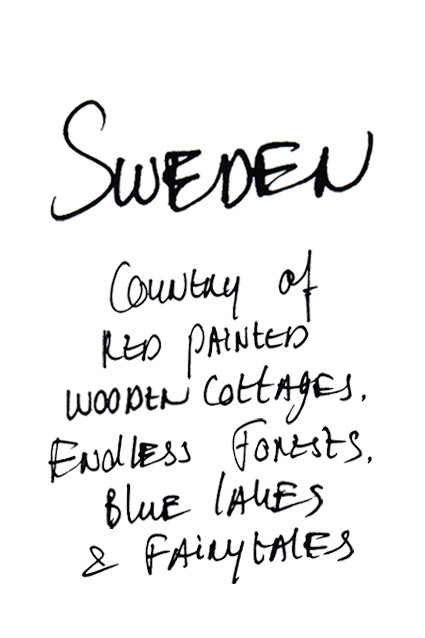 SWEDEN
COUNTRY of
RED PAINTED
WOODEN COttAGES,
ENdLESS FORESTS,
BLUE lAKES
& FAiRytALES